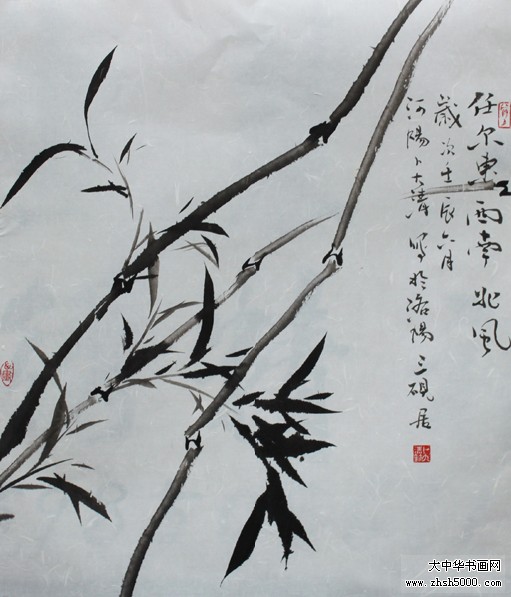 任尔东西南北风
岁次壬辰六月
河陽卜大清寫於洛陽三硯居
大中华书画网
www.zhsh5000.com